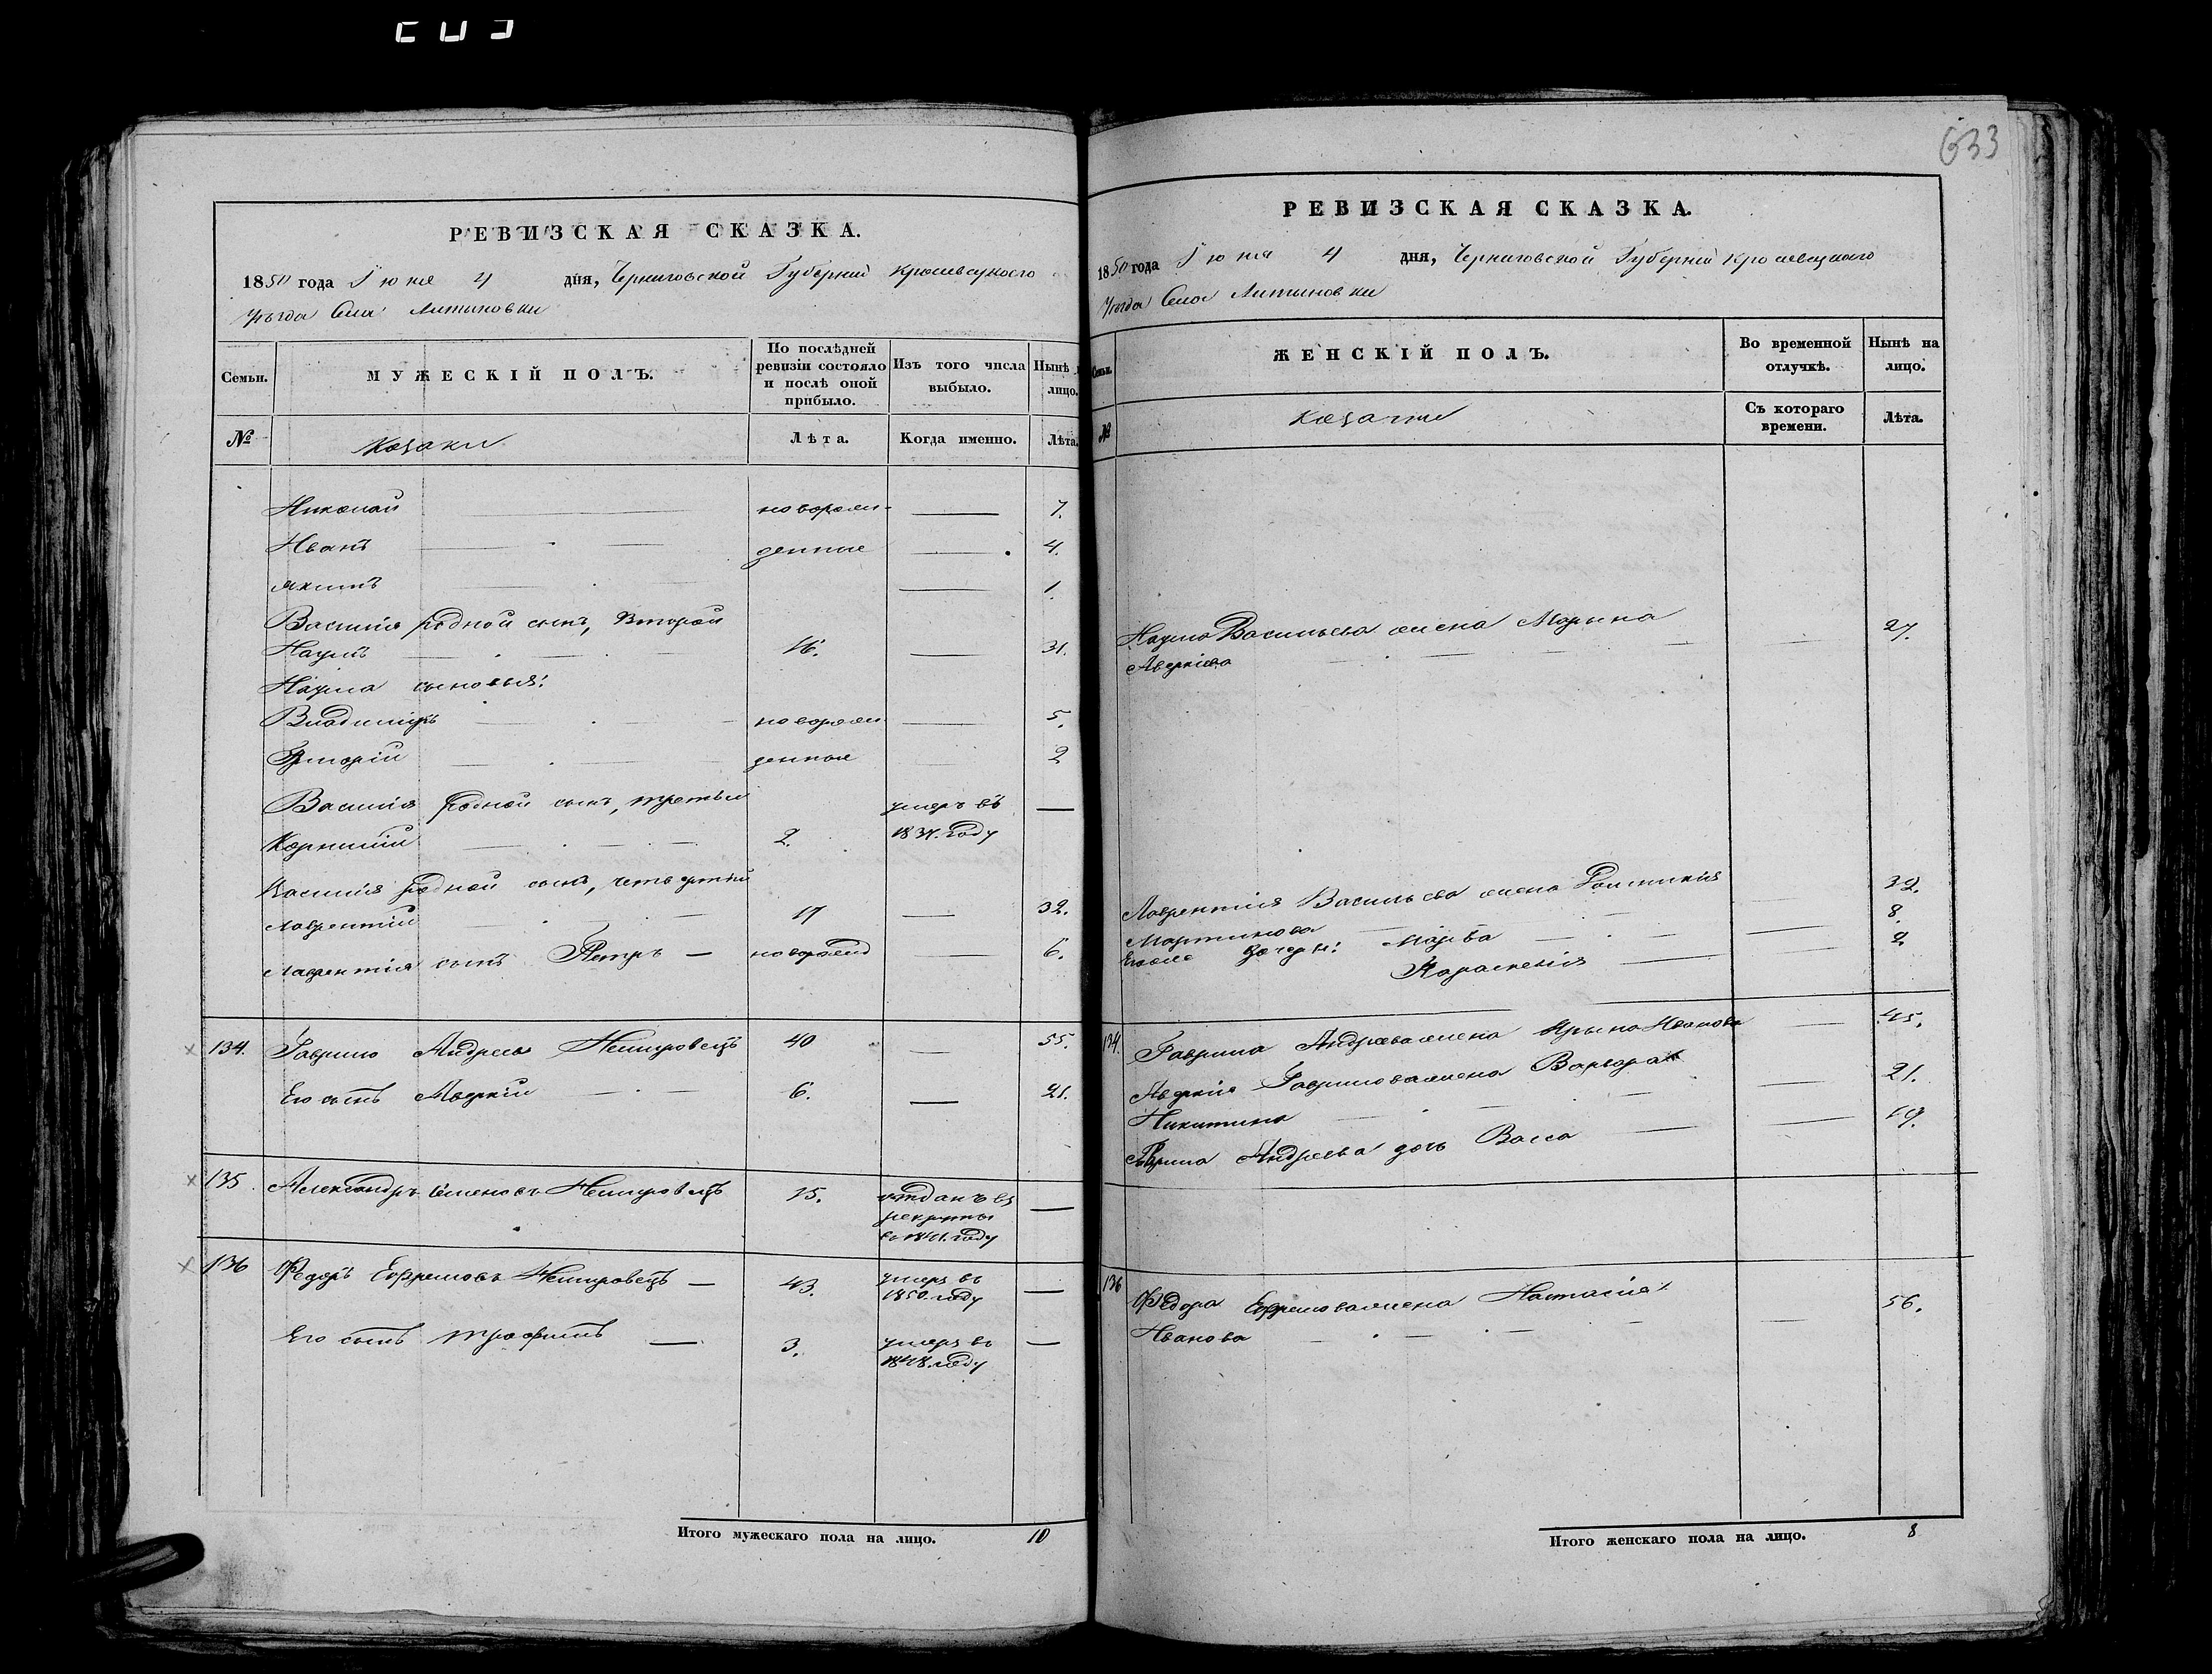 633
РЕВИЗСКАЯ СКАЗКА.
1850 года Іюня 4 дня, Черниговской Губерніи Кролевецкого
Уѣзда Села Литвиновки
Семьи.
МУЖЕСКІЙ ПОЛЪ.
По послѣдней ревизіи состояло и послѣ оной прибыло.
Изъ того числа выбыло.
Нынѣ лицо.
№
Козаки
Лѣта.
Когда именно.
Лѣта.
Николай новорож- 7.
Иванъ денные 4.
Якимъ 1.
Василія родной сынъ, Второй
Наумъ 16. 31.
Наума сыновья:
Владиміръ новорож 5.
Григорій денные 2
Василія родной сынъ, третьи умеръ въ
Корнилій 2. году
Василія родной сынъ, четвертый
Лаврентій 17 32.
Лаврентія сынъ Петръ — новорожд 6.
134. Гаврило Андреевъ Немировецъ 40 55.
Его сынъ Аверкій 6. 21.
135. Александръ Семеновъ Немировецъ 15. отданъ въ
рекруты
въ 1841. году
136 Федоръ Ефремовъ Немировецъ — 43. умеръ въ
1850. году
Его сынъ Трофимъ — 3. умеръ въ
1848. году
Итого мужескаго пола на лицо. 10
РЕВИЗСКАЯ СКАЗКА.
1850 года Іюня 4 дня, Черниговской Губерніи Кролевецкаго
Уѣзда Села Литвиновки
Семьи.
ЖЕНСКІЙ ПОЛЪ.
Во временной отлучкѣ.
Нынѣ на лицо.
№
Съ котораго времени.
Лѣта.
Наума Васильева жена Марина 27.
Аверкіева
Лаврентія Васильева жена 32.
Мартинова
дочери: Марѳа 8.
Параскевія 2
134. Гаврила Андреева жена Ирина Иванова 45.
Аверкія Гаврилова жена Варвара
Никитина 21.
Гаврила Андреева дочь Васса 19.
136 Федора Ефремова жена Настасія
Иванова 56.
Итого женскаго пола на лицо. 8